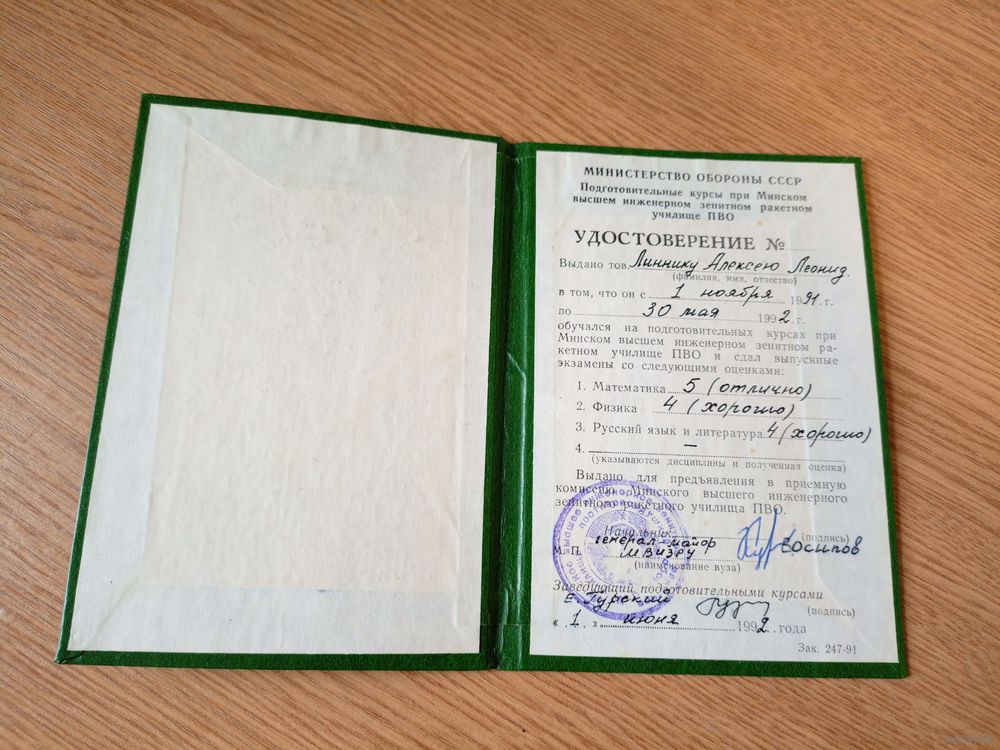 МИНИСТЕРСТВО ОБОРОНЫ СССР
Подготовительные курсы при Минском
высшем инженерном зенитном ракетном
училище ПВО
УДОСТОВЕРЕНИЕ №
Выдано тов. Линнику Алексею Леонид.
(фамилия, имя, отчество)
в том, что он с 1 ноября 1991 г.
по 30 мая 1992 г.
обучался на подготовительных курсах при
Минском высшем инженерном зенитном ра-
кетном училище ПВО и сдал выпускные
экзамены со следующими оценками:
1. Математика 5 (отлично)
2. Физика 4 (хорошо)
3. Русский язык и литература 4 (хорошо)
4. —
(указываются дисциплины и полученная оценка)
Выдано для предъявления в приемную
комиссию Минского высшего инженерного
зенитного ракетного училища ПВО.
Начальник (подпись)
генерал-майор
М. П. МВИЗРУ
(наименование вуза)
Заведующий подготовительными курсами
Е. Гурский (подпись)
« 1 » июня 1992 года
Зак. 247-91